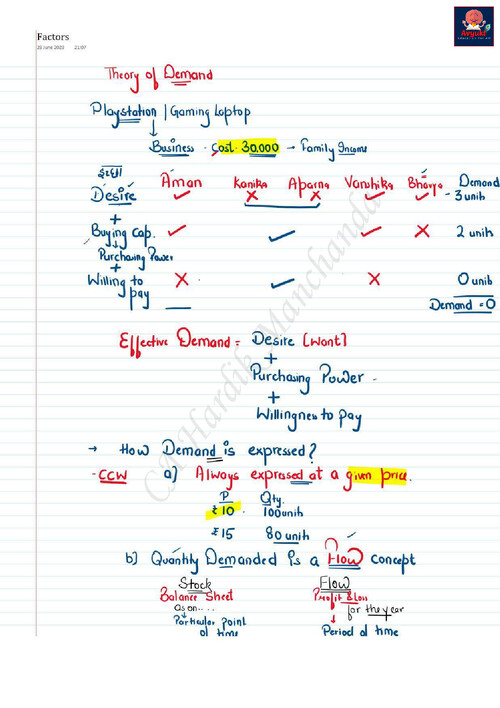 Factors
26 June 2023 21:07
Avyukt
Theory of Demand
Playstation | Gaming Laptop
Business - Cost 30,000 → Family Income
इच्छा
Aman Kanika Aparna Vanshika Bhavya Demand
Desire ✓ ✗ ✗ ✓ ✓ - 3 units
+
Buying Cap. ✓ ✓ ✓ ✗ 2 units
Purchasing Power
+
Willing to pay ✗ ✓ ✗ 0 units
Demand = 0
Effective Demand = Desire [Want]
+
Purchasing Power
+
Willingness to Pay
→ How Demand is expressed?
- CCW a] Always expressed at a given price.
P Qty.
₹ 10 100 units
₹ 15 80 units
b] Quantity Demanded is a Flow concept
Stock Flow
Balance Sheet Profit & Loss
as on.... for the year
Particular point of time Period of time
CA Hardik Manchanda